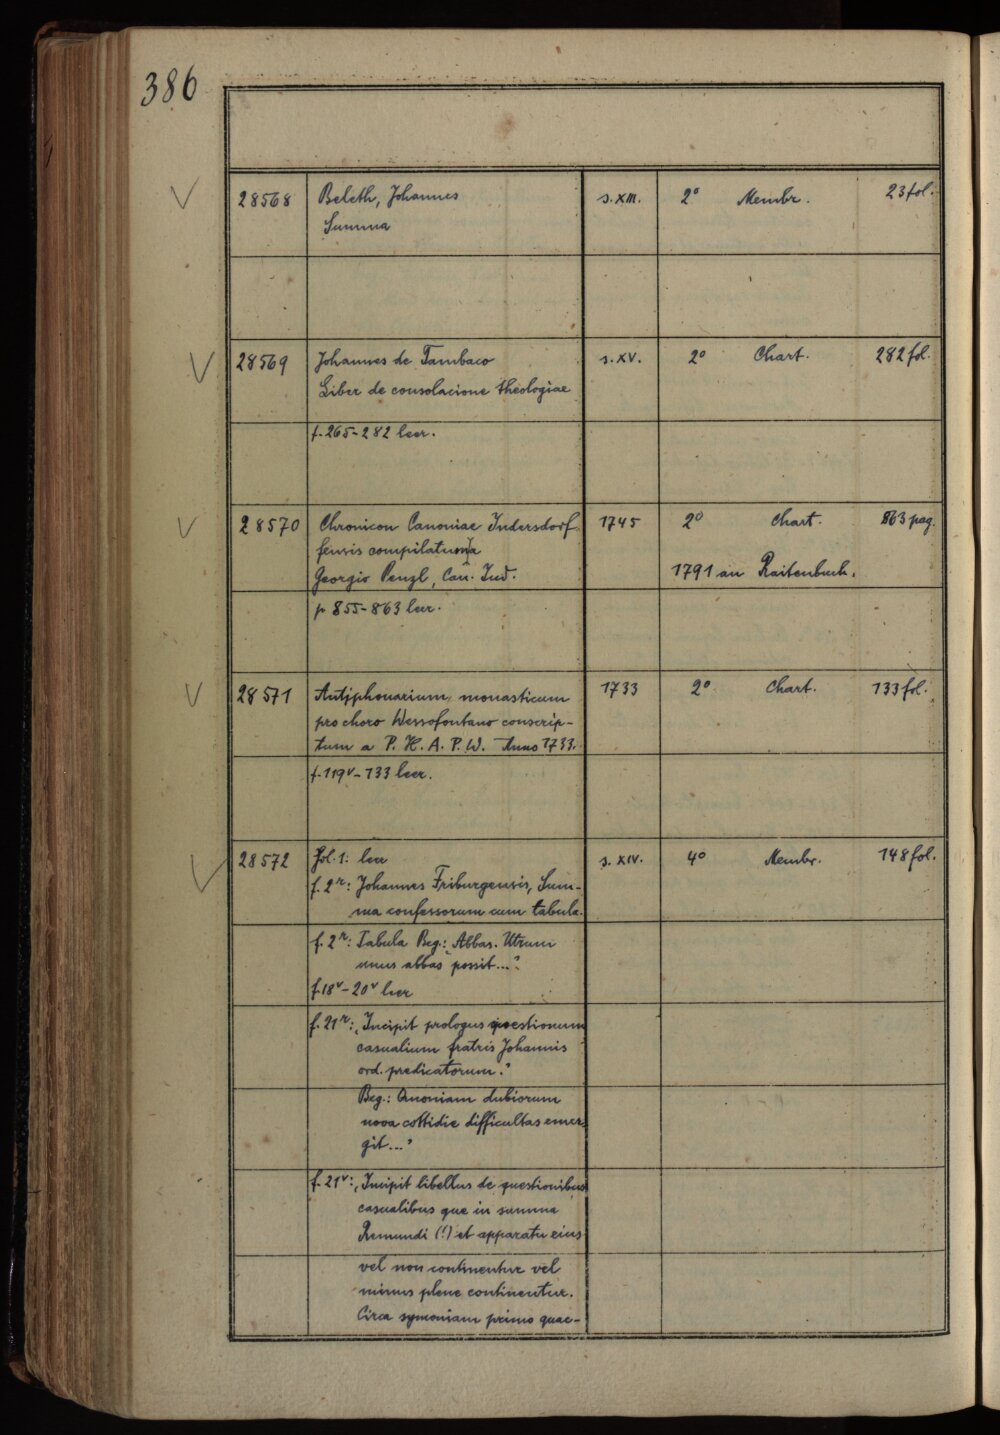 386
28568 Beleth, Johannes s. XIII. 2° Membr. 23 fol.
Summa
28569 Johannes de Tambaco s. XV. 2° Chart. 282 fol.
Liber de consolacione theologiae
f. 265-282 leer.
28570 Chronicon Canoniae Indersdorf 1745 2° Chart. 863 pag.
fensis compilatum a
Georgio Penzl, Can. Ind. 1791 an Raitenbuch.
p 855-863 leer.
28571 Antiphonarium monasticum 1733 2° Chart. 133 fol.
pro choro Wessofontano conscrip-
tum a P. H. A. P. W. Anno 1733.
f. 119v-133 leer.
28572 Fol. 1: leer s. XIV. 4° Membr. 148 fol.
f. 2r: Johannes Friburgensis, Sum-
ma confessorum cum tabula.
f. 2r: Tabula Beg.: „Abbas. Utrum
unus abbas possit..."
f. 18v-20v leer
f. 21r: „Incipit prologus questionum
casualium fratris Johannis
ord. predicatorum."
Beg.: Quoniam dubiorum
nova cottidie difficultas emer
git..."
f. 21v: „Incipit libellus de questionibus
casualibus que in summa
Remundi (!) et apparatu eius
vel non continentur vel
minus plene continentur.
Circa symoniam primo quae-